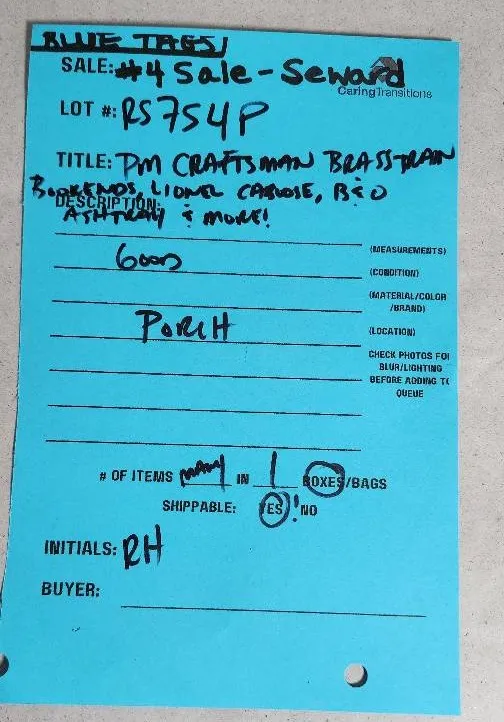 BLUE TAGS/
SALE: #4 Sale - Seward
CaringTransitions
LOT #: RS754P
TITLE: PM CRAFTSMAN BRASS TRAIN
BOOKENDS, LIONEL CABOOSE, B&O
DESCRIPTION:
ASHTRAY & MORE!
(MEASUREMENTS)
GOOD
(CONDITION)
(MATERIAL/COLOR
/BRAND)
PORCH
(LOCATION)
CHECK PHOTOS FO
BLUR/LIGHTING
BEFORE ADDING TO
QUEUE
# OF ITEMS MANY IN 1 BOXES/BAGS
SHIPPABLE: YES! NO
INITIALS: RH
BUYER: